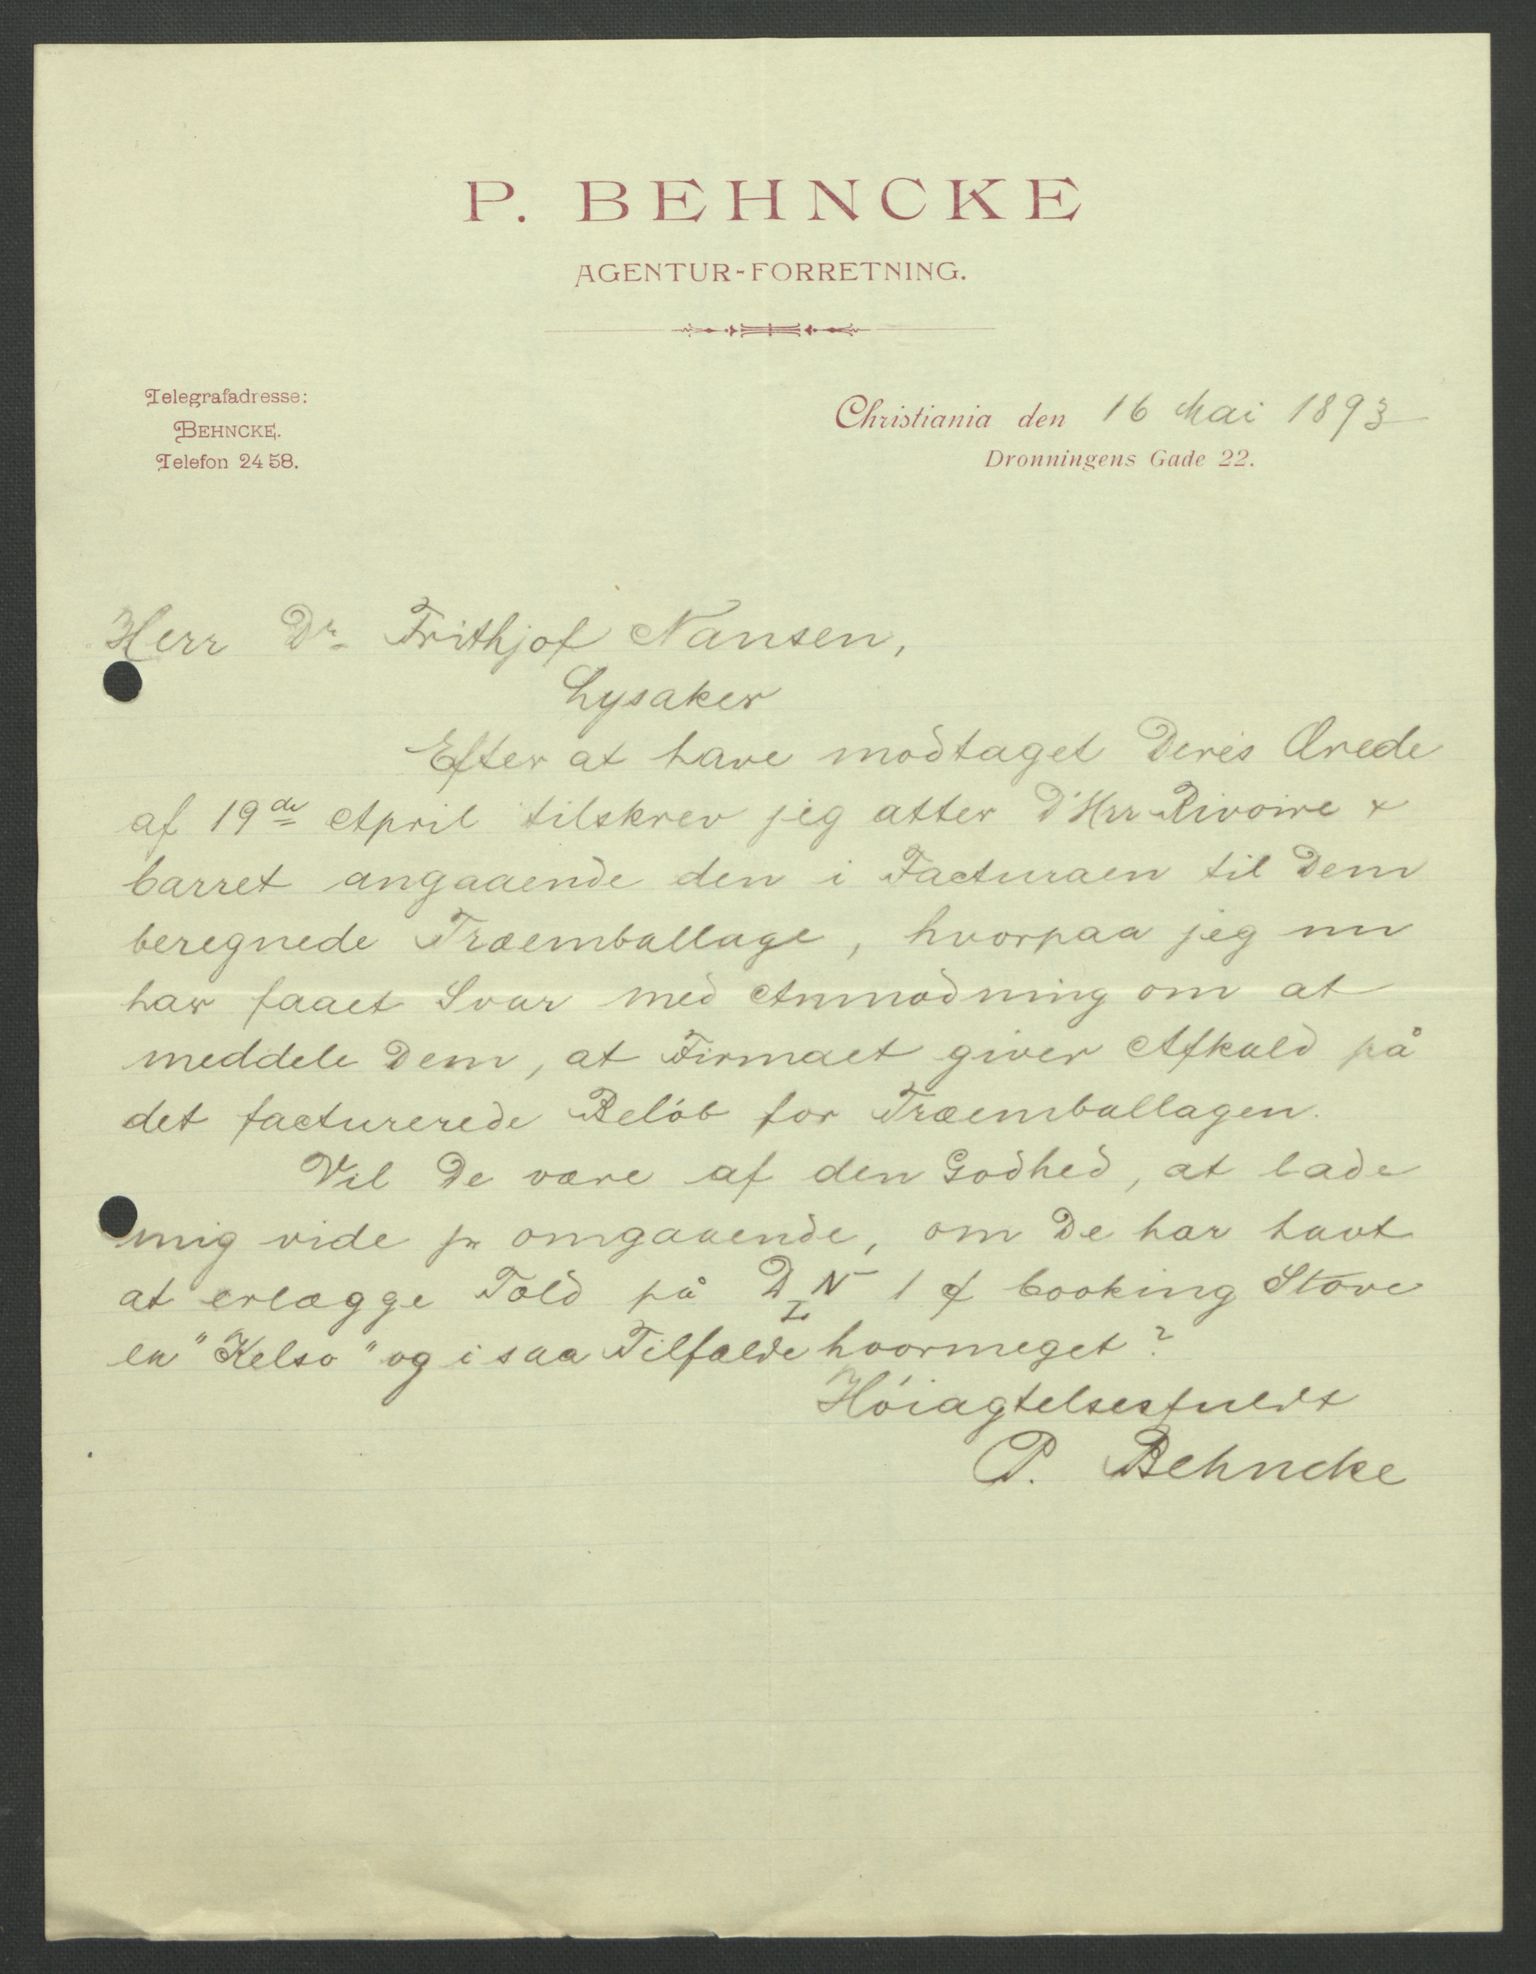 P. BEHNCKE
AGENTUR-FORRETNING.
Telegrafadresse:
BEHNCKE.
Telefon 2458.
Christiania den 16 Mai 1893
Dronningens Gade 22.
Herr Dr. Frithjof Nansen,
Lysaker
Efter at have modtaget Deres Ærede
af 19de April tilskrev jeg atter D'Hrr Rivoire &
Carret angaaende den i Facturaen til Dem
beregnede Træemballage, hvorpaa jeg nu
har faaet Svar med Anmodning om at
meddele Dem, at Firmaet giver Afkald på
det facturerede Beløb for Træemballagen.
Vil De være af den Godhed, at lade
mig vide pr omgaaende, om De har havt
at erlægge Told på D N 1 Cooking Stove
L
"Kelso" og i saa Tilfælde hvormeget?
Høiagtelsesfuldt
P. Behncke